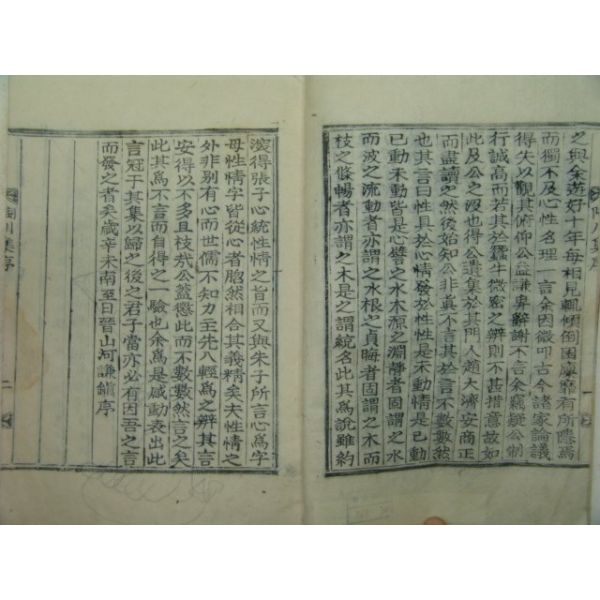 之與余遊好十年每相見輒傾倒囷廩靡有所隱焉
而獨不及心性名理一言余因微叩古今諸家論議
得失以觀其俯仰公益謙卑辭謝不言余竊疑公制
行誠高而若其於蠶牛微密之辨則不甚措意故如
此及公之沒也得公遺集於其門人趙大濟安商正
而盡讀之然後始知公非眞不言其於言不數數然
也其言曰性具於心情發於性性是未動情是已動
已動未動皆是心譬之水木源之淵靜者固謂之水
而波之流動者亦謂之水根之貞晦者固謂之木而
枝之條暢者亦謂之木是之謂統名此其爲說雖約
深得張子心統性情之旨而又與朱子所言心爲字
母性情字皆從心者脗然相合其義精矣夫性情之
外非別有心而世儒不知力主先入輕爲之辨其言
安得以不多且枝哉公蓋懲此而不數數然言之矣
此其爲不言而自得之一驗也余爲是感動表出此
言冠于其集以歸之後之君子當亦必有因吾之言
而發之者矣歲辛未南至日晉山河謙鎭序
川集序
一
川集序
二